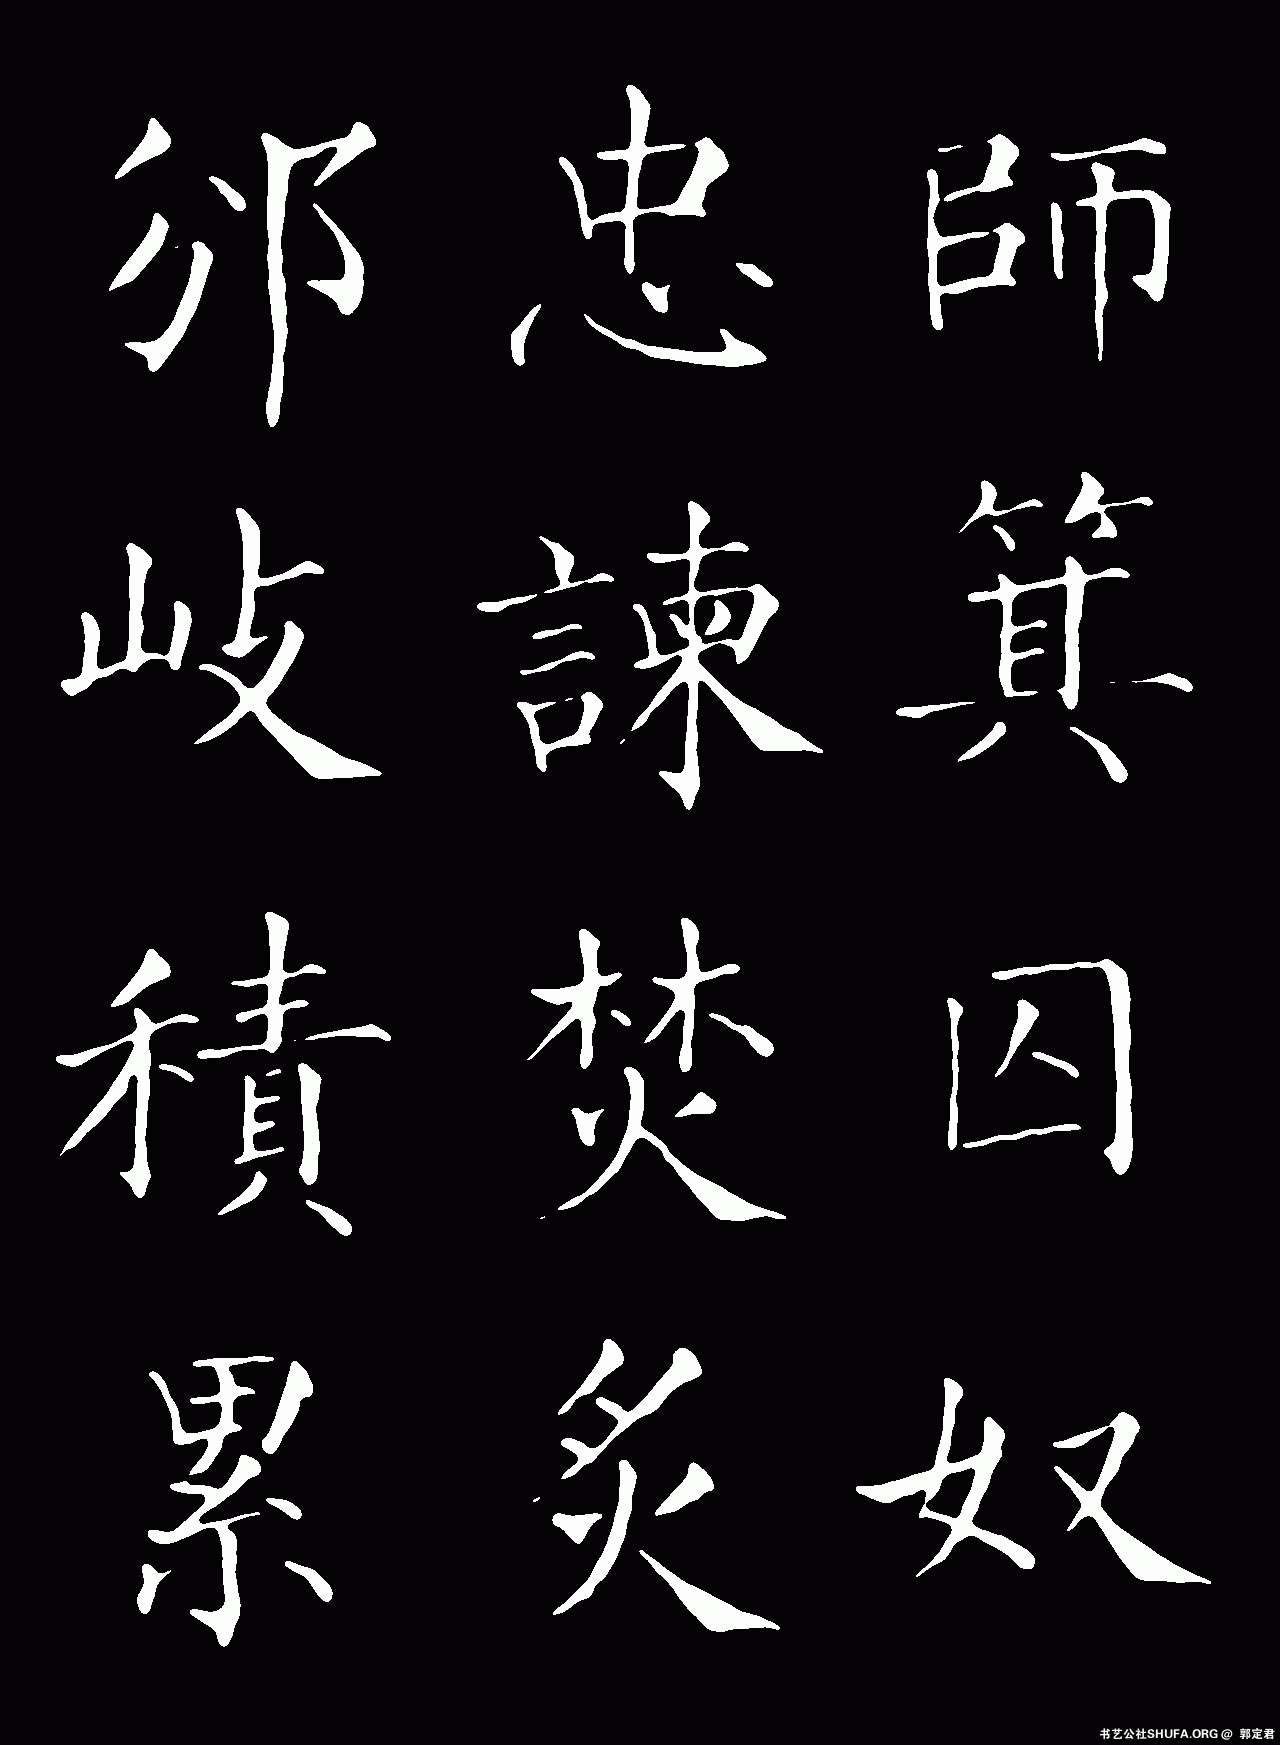 師箕囚奴
忠諫焚炙
邠岐積累
书艺公社SHUFA.ORG @ 郭定君